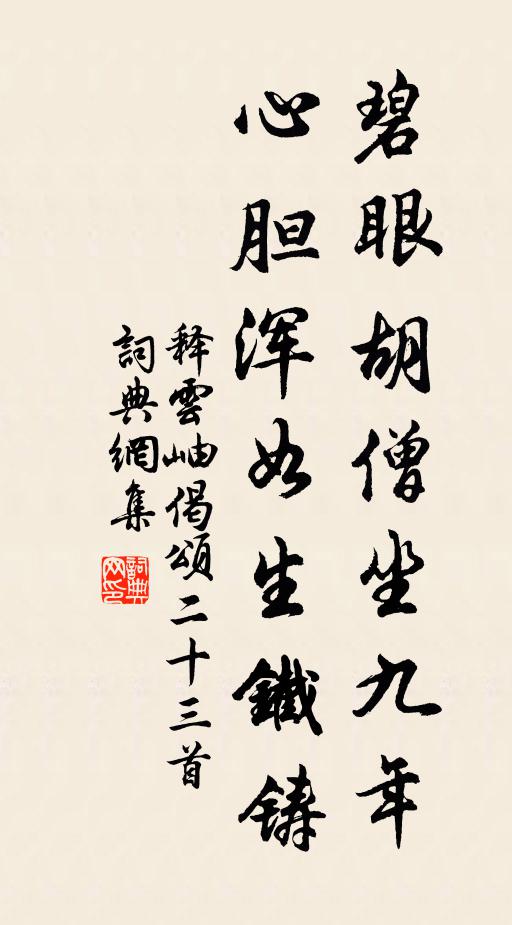 碧眼胡僧坐九年
心胆浑如生鐵铸
释雲岫偈頌二十三首
詞典網集
詞典网印